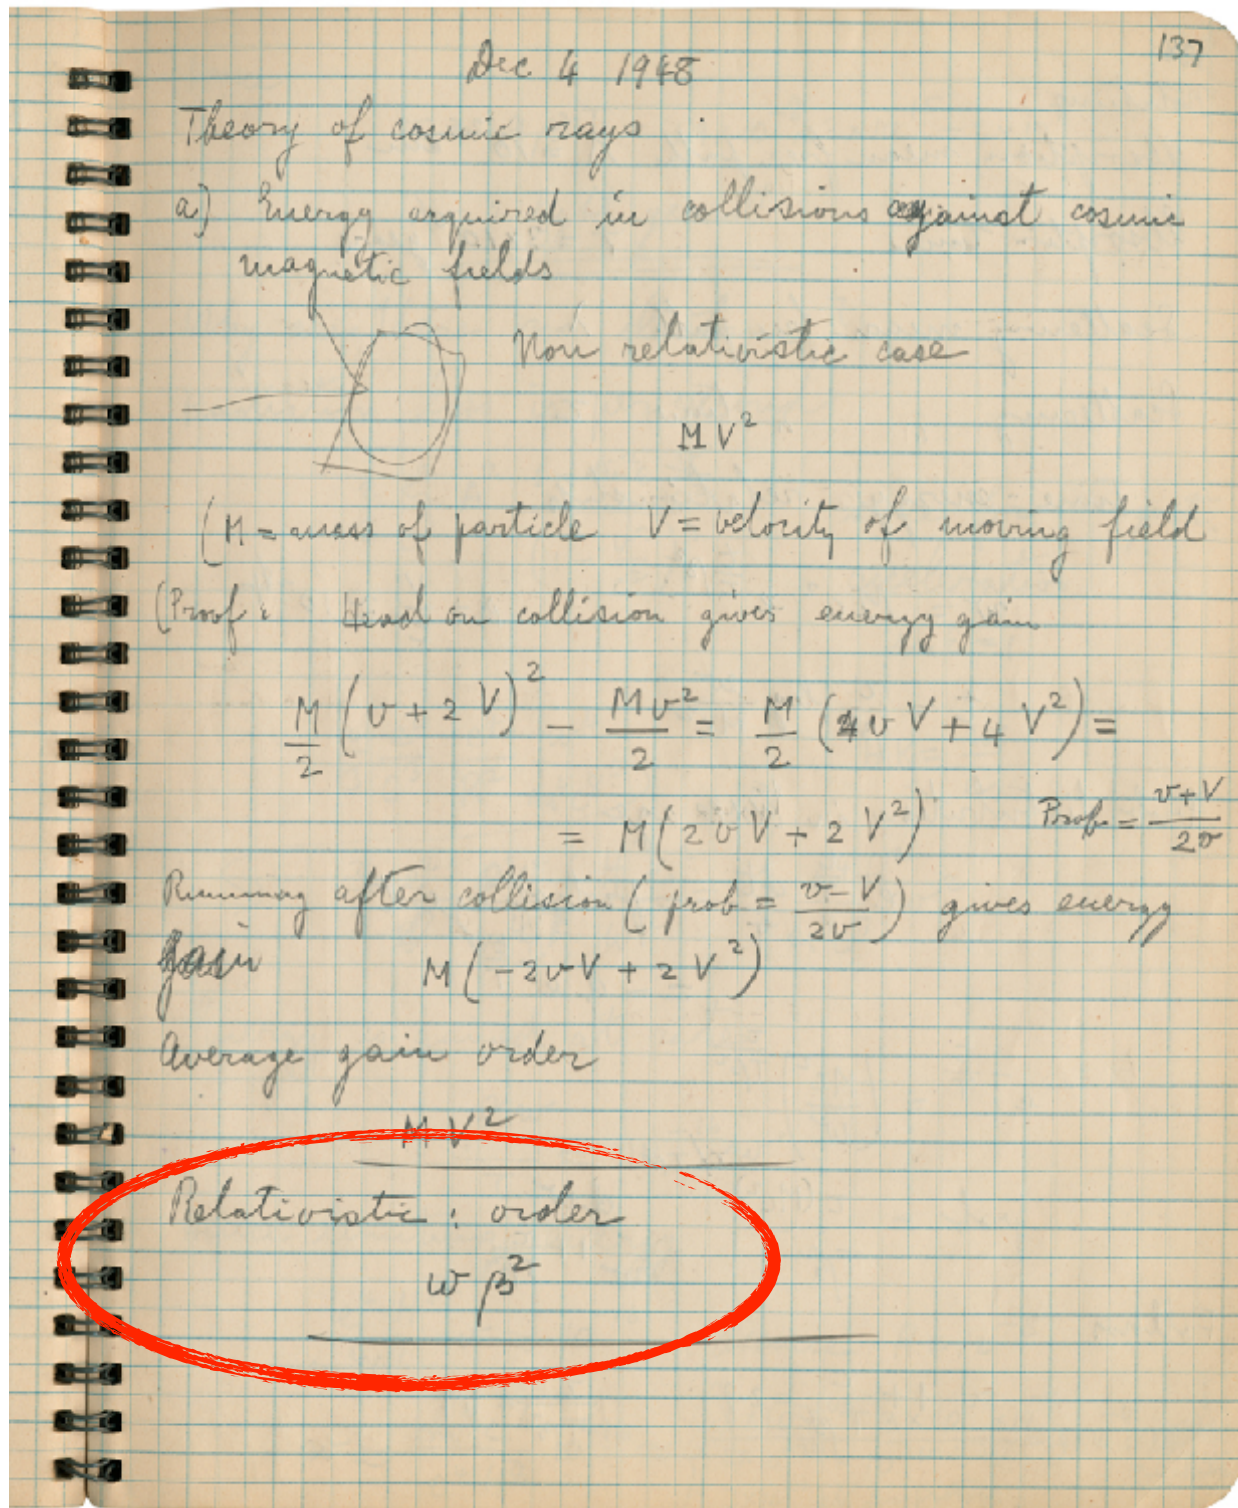 137
Dec 4 1948
Theory of cosmic rays
a) Energy acquired in collisions against cosmic
magnetic fields
Non relativistic case
MV²
(M = mass of particle V = velocity of moving field
(Proof: Head on collision gives energy gain
M/2 (v + 2V)² - Mv²/2 = M/2 (4vV + 4V²) =
= M(2vV + 2V²) Prob = v+V/2v
Running after collision (prob = v-V/2v) gives energy
gain M(-2vV + 2V²)
Average gain order
MV²
Relativistic: order
wβ²